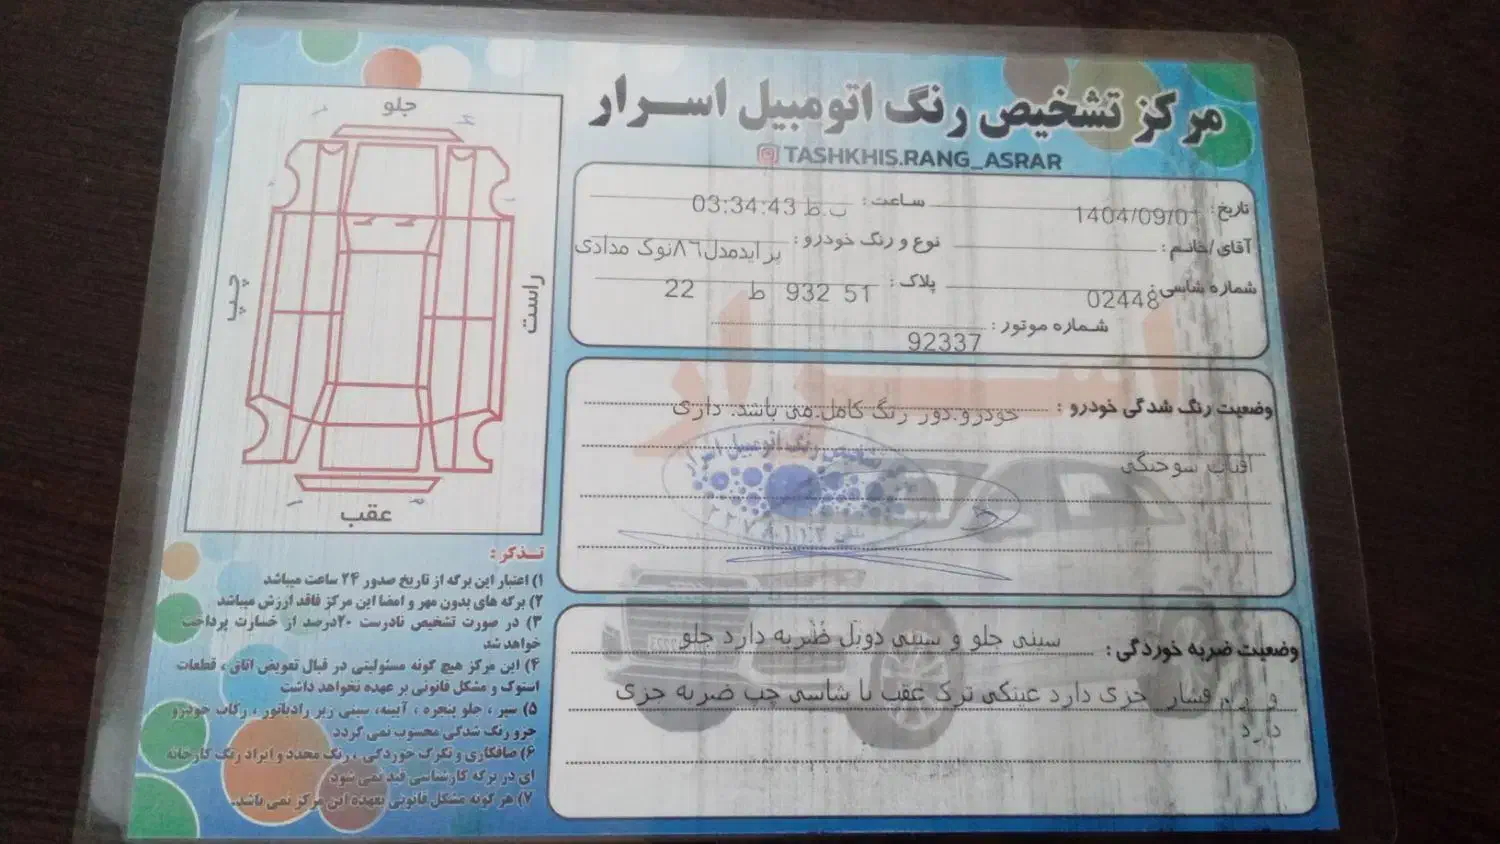 مرکز تشخیص رنگ اتومبیل اسرار
TASHKHIS.RANG_ASRAR
تاریخ: 1404/09/01 ساعت: 03:34:43 ب.ظ
آقای/خانم: نوع و رنگ خودرو: پرایدمدل۸۶نوک مدادی
شماره شاسی: 02448 پلاک: 51 932 ط 22
شماره موتور: 92337
وضعیت رنگ شدگی خودرو: خودرو.دور رنگ کامل.می باشد. داری
افتاب سوختگی
تشخیص رنگ اتومبیل اسرار
وضعیت ضربه خوردگی: سینی جلو و سینی دوبل ضربه دارد جلو
و فشار جزی دارد عینکی ترک عقب با شاسی چپ ضربه جزی
دارد
جلو
چپ
راست
عقب
تذکر:
۱) اعتبار این برگه از تاریخ صدور ۲۴ ساعت میباشد
۲) برگه های بدون مهر و امضا این مرکز فاقد ارزش میباشد
۳) در صورت تشخیص نادرست ۲۰درصد از خسارت پرداخت
خواهد شد
۴) این مرکز هیچ گونه مسئولیتی در قبال تعویض اتاق ، قطعات
استوک و مشکل قانونی بر عهده نخواهد داشت
۵) سپر ، جلو پنجره ، آیینه، سینی زیر رادیاتور ، رکاب خودرو
جزو رنگ شدگی محسوب نمی گردد
۶) صافکاری و تگرگ خوردگی ، رنگ مجدد و ایراد رنگ کارخانه
ای در برگه کارشناسی قید نمی شود
۷) هر گونه مشکل قانونی بعهده این مرکز نمی باشد.